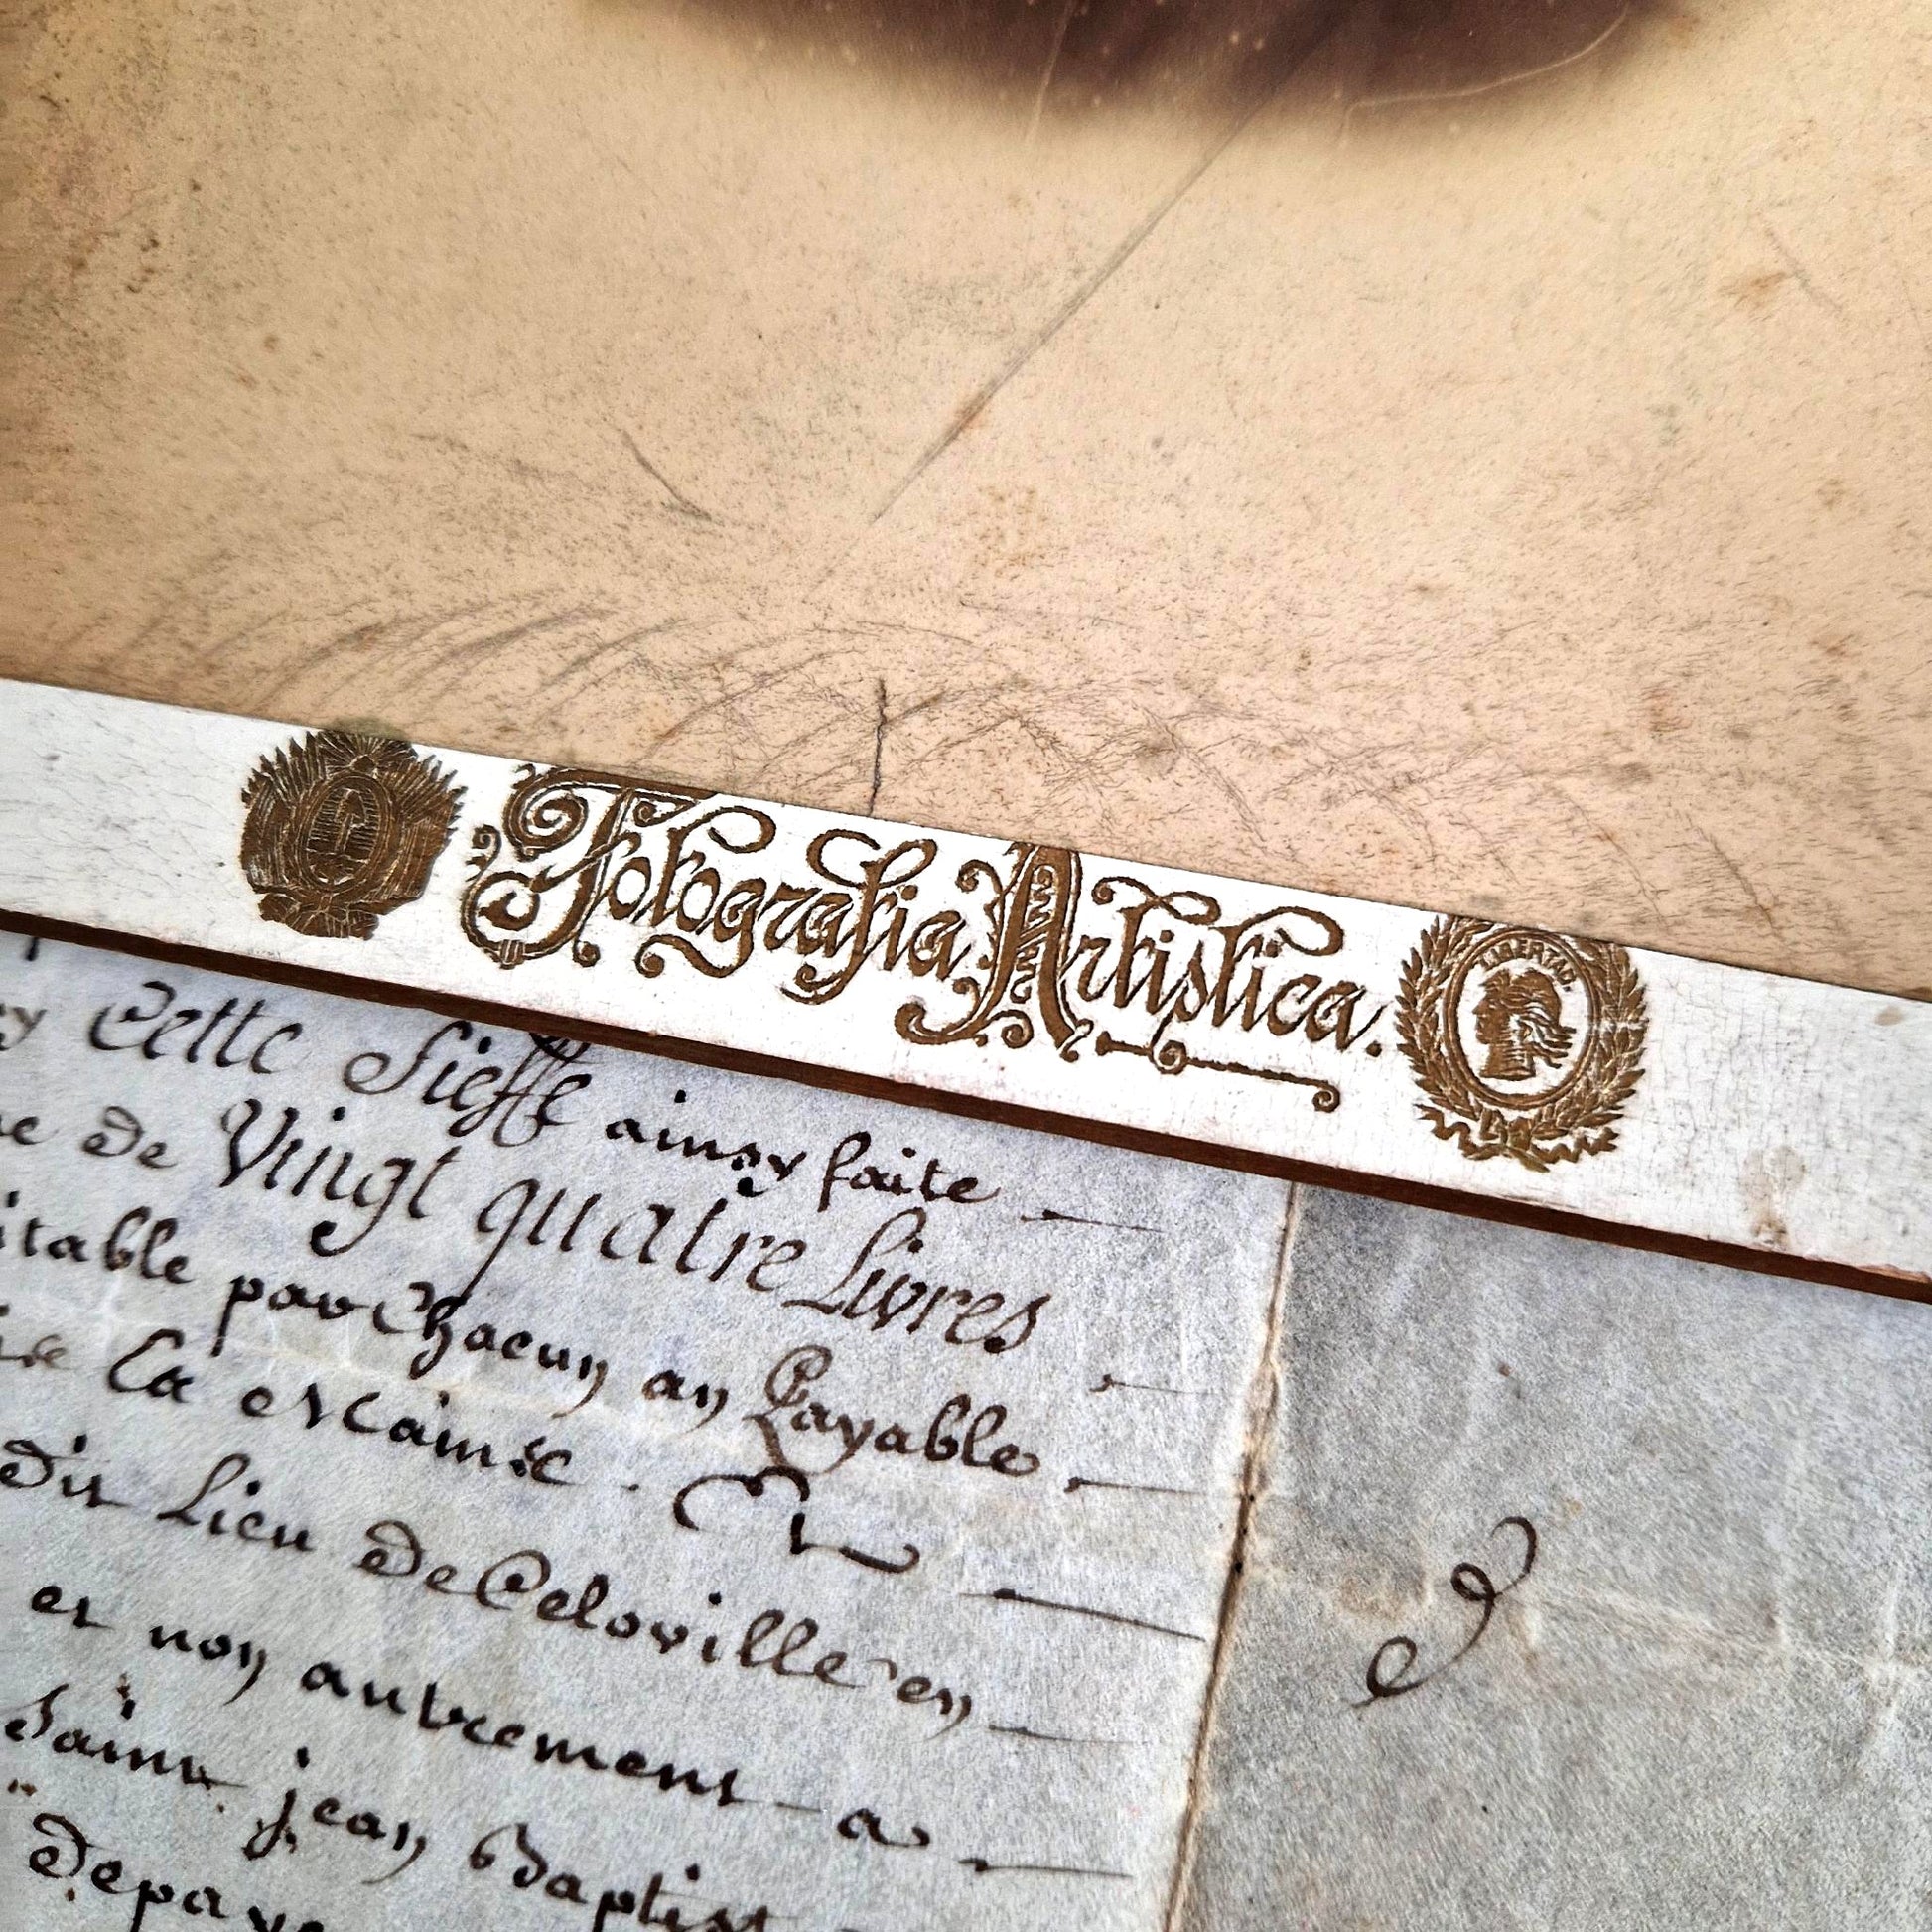 Fotografia Artistica.
LIBERTAD
Cette fieffe ainsy faite
de Vingt quatre Livres
par Chacun an Payable
La
dit Lieu de Celoville en
et non autrement a
Saint jean Baptist